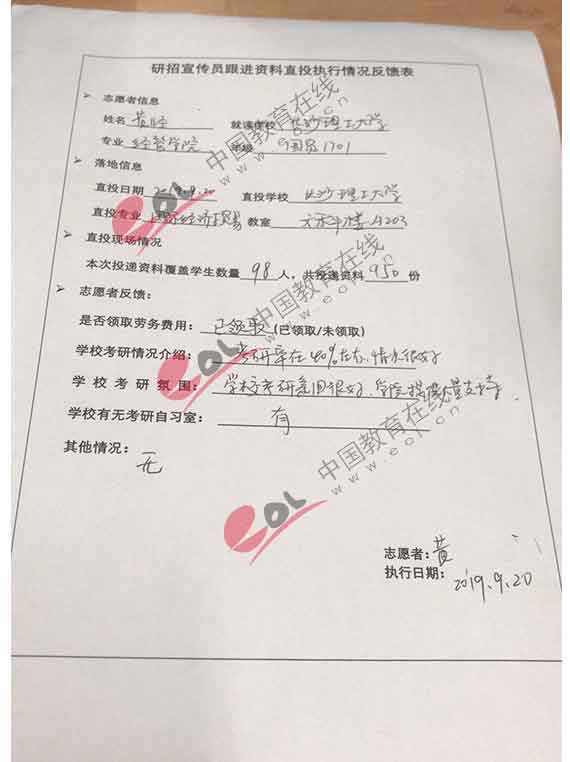 研招宣传员跟进资料直投执行情况反馈表
➢ 志愿者信息
姓名 黄 就读学校 长沙理工大学
专业 经管学院 年级 国贸1701
➢ 落地信息
直投日期 2019.9.20 直投学校 长沙理工大学
直投专业 国际经济与贸易 教室 A203
➢ 直投现场情况
本次投递资料覆盖学生数量 98 人，共投递资料 950 份
➢ 志愿者反馈：
是否领取劳务费用：已领取 (已领取/未领取)
学校考研情况介绍：考研率在40%左右,情况很好
学校考研氛围：学校考研氛围很好,学院提供大量支持.
学校有无考研自习室：有
其他情况：无
志愿者：黄
执行日期：2019.9.20
eol 中国教育在线
www.eol.cn
eol 中国教育在线
www.eol.cn
eol 中国教育在线
www.eol.cn